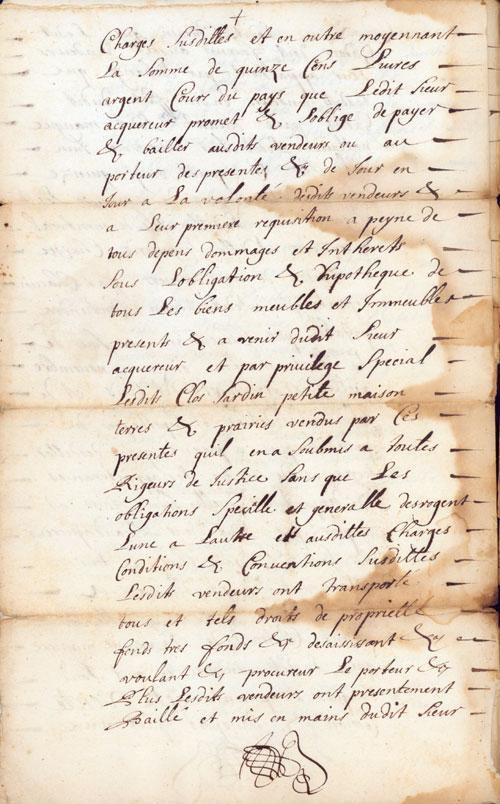 Charges Susdittes et en outre moyennant
La Somme de quinze Cens Livres
argent Cours du pays que Ledit Sieur
acquereur promet & Soblige de payer
& bailler ausdits vendeurs ou au
porteur des presentes & de Jour en
Jour a La volonté desdits vendeurs &
a Leur premiere requisition a peyne de
tous depens dommages et Intherests
Sous Lobligation & hipotheque de
tous Les biens meubles et Immeubles
presents & a venir dudit Sieur
acquereur et par privilege Special
Lesdits Clos Jardin petite maison
terres & prairies vendus par Ces
presentes quil en a Soubmis a toutes
Rigeurs de Justice Sans que Les
obligations Specialle et generalle desrogent
Lune a Lautre et ausdittes Charges
Conditions & Conventions Susdittes
Lesdits vendeurs ont transporté
tous et tels droits de proprietté
fonds tres fonds & desaisissant &
voulant & procureur Le porteur &
Plus Lesdits vendeurs ont presentement
Baillé et mis en mains dudit Sieur